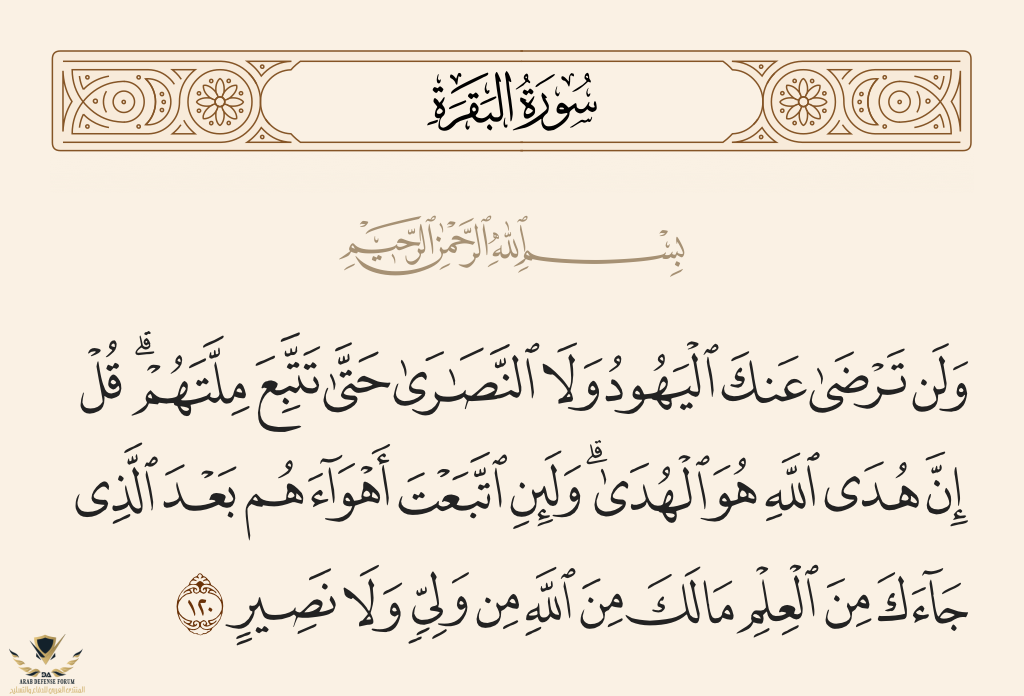 سُورَةُ البَقَرَةِ
بِسْمِ ٱللَّهِ ٱلرَّحْمَٰنِ ٱلرَّحِيمِ
وَلَن تَرْضَىٰ عَنكَ ٱلْيَهُودُ وَلَا ٱلنَّصَـٰرَىٰ حَتَّىٰ تَتَّبِعَ مِلَّتَهُمْ ۗ قُلْ
إِنَّ هُدَى ٱللَّهِ هُوَ ٱلْهُدَىٰ ۗ وَلَئِنِ ٱتَّبَعْتَ أَهْوَآءَهُم بَعْدَ ٱلَّذِى
جَآءَكَ مِنَ ٱلْعِلْمِ مَا لَكَ مِنَ ٱللَّهِ مِن وَلِىٍّ وَلَا نَصِيرٍ ١٢٠
DA
ARAB DEFENSE FORUM
المنتدى العربي للدفاع والتسليح